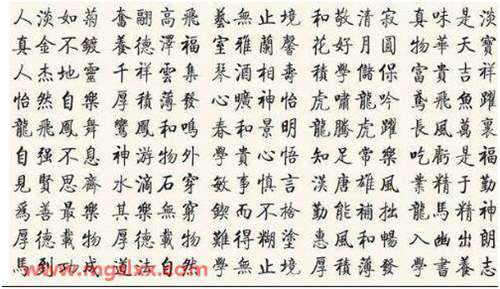 人淡如菊奮翮高飛藝無止境和敬清寂真味是淡
真金不鍍養德澤福室雅蘭馨花好月圓物華天寶
人杰地靈千祥雲集琴酒相壽學儲保富貴吉祥
怡然自樂厚積薄發心曠神怡虎嘯龍吟鳶飛魚躍
龍飛鳳舞鸞鳳和鳴春和景明龍騰虎躍長風萬裏
自强不息神游物外學貴心悟知足常樂吃虧是福
見賢思齊水滴石穿敏事慎言漢唐雄風業精于勤
爲善最樂其樂無窮鍥而不捨勤能補拙龍馬精神
厚德載物厚德載福難得糊塗惠風和暢入幽出朗
馬到功成道法自然學無止境厚積薄發學書養志